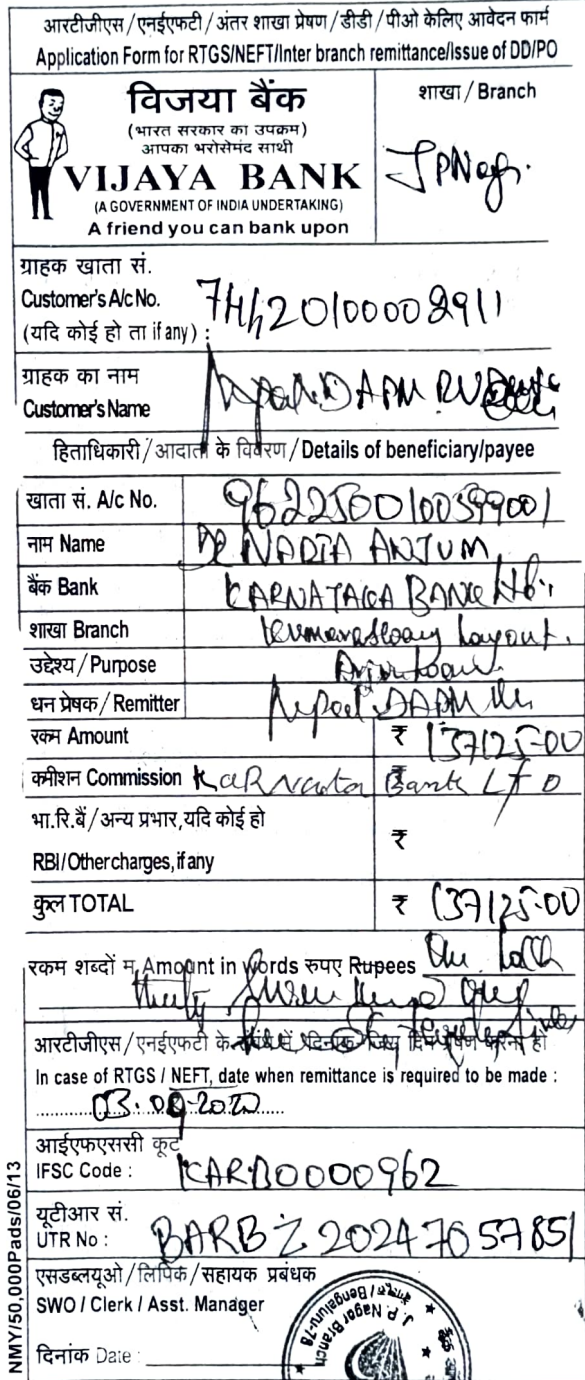 आरटीजीएस/एनईएफटी/अंतर शाखा प्रेषण/डीडी/पीओ केलिए आवेदन फार्म
Application Form for RTGS/NEFT/Inter branch remittance/Issue of DD/PO
विजया बैंक
(भारत सरकार का उपक्रम)
आपका भरोसेमंद साथी
VIJAYA BANK
(A GOVERNMENT OF INDIA UNDERTAKING)
A friend you can bank upon
शाखा / Branch
JPNagr.
ग्राहक खाता सं.
Customer's A/c No.
(यदि कोई हो ता if any) :
74420100002911
ग्राहक का नाम
Customer's Name
DAPM RV
हिताधिकारी/आदाता के विवरण/Details of beneficiary/payee
खाता सं. A/c No. 9622500100399001
नाम Name DR NADIA ANJUM
बैंक Bank KARNATAKA BANK
शाखा Branch Layout.
उद्देश्य/Purpose
धन प्रेषक/Remitter DAPM
रकम Amount ₹ 137125-00
कमीशन Commission ₹ Bank LTD
भा.रि.बैं/अन्य प्रभार,यदि कोई हो
RBI/Othercharges,if any ₹
कुल TOTAL ₹ 137125-00
रकम शब्दों म Amount in words रुपए Rupees One Lakh
Thirty Seven
आरटीजीएस/एनईएफटी के
In case of RTGS / NEFT, date when remittance is required to be made :
आईएफएससी कूट
IFSC Code : KARB0000962
यूटीआर सं.
UTR No : BARBZ20247057851
एसडब्लयूओ/लिपिक/सहायक प्रबंधक
SWO / Clerk / Asst. Manager
दिनांक Date :
J. P. Nagar Branch
Bengaluru-78
NMY/50,000Pads/06/13